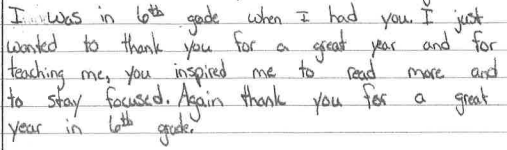 I was in 6th gade when I had you. I just
wanted to thank you for a great year and for
teaching me, you inspired me to read more and
to stay focused. Again thank you for a great
year in 6th grade.